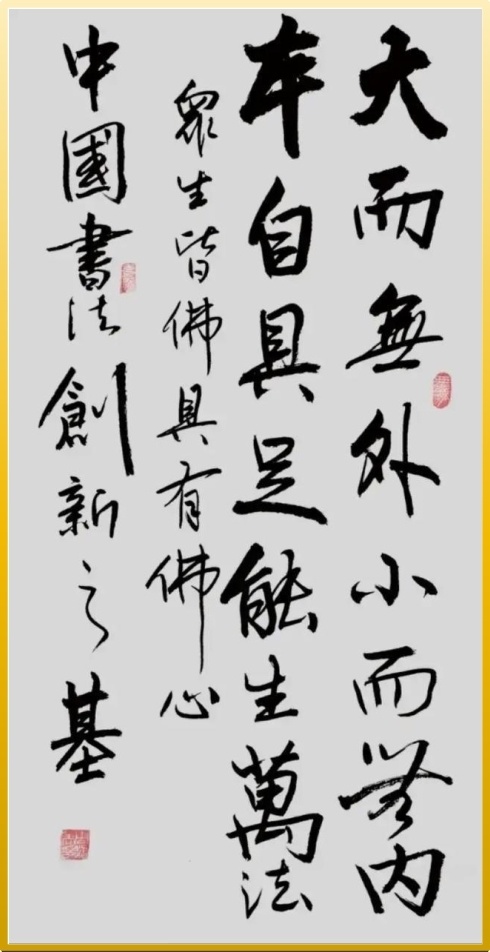 大而無外小而無内
本自具足能生萬法
眾生皆佛具有佛心
中國書法創新之基